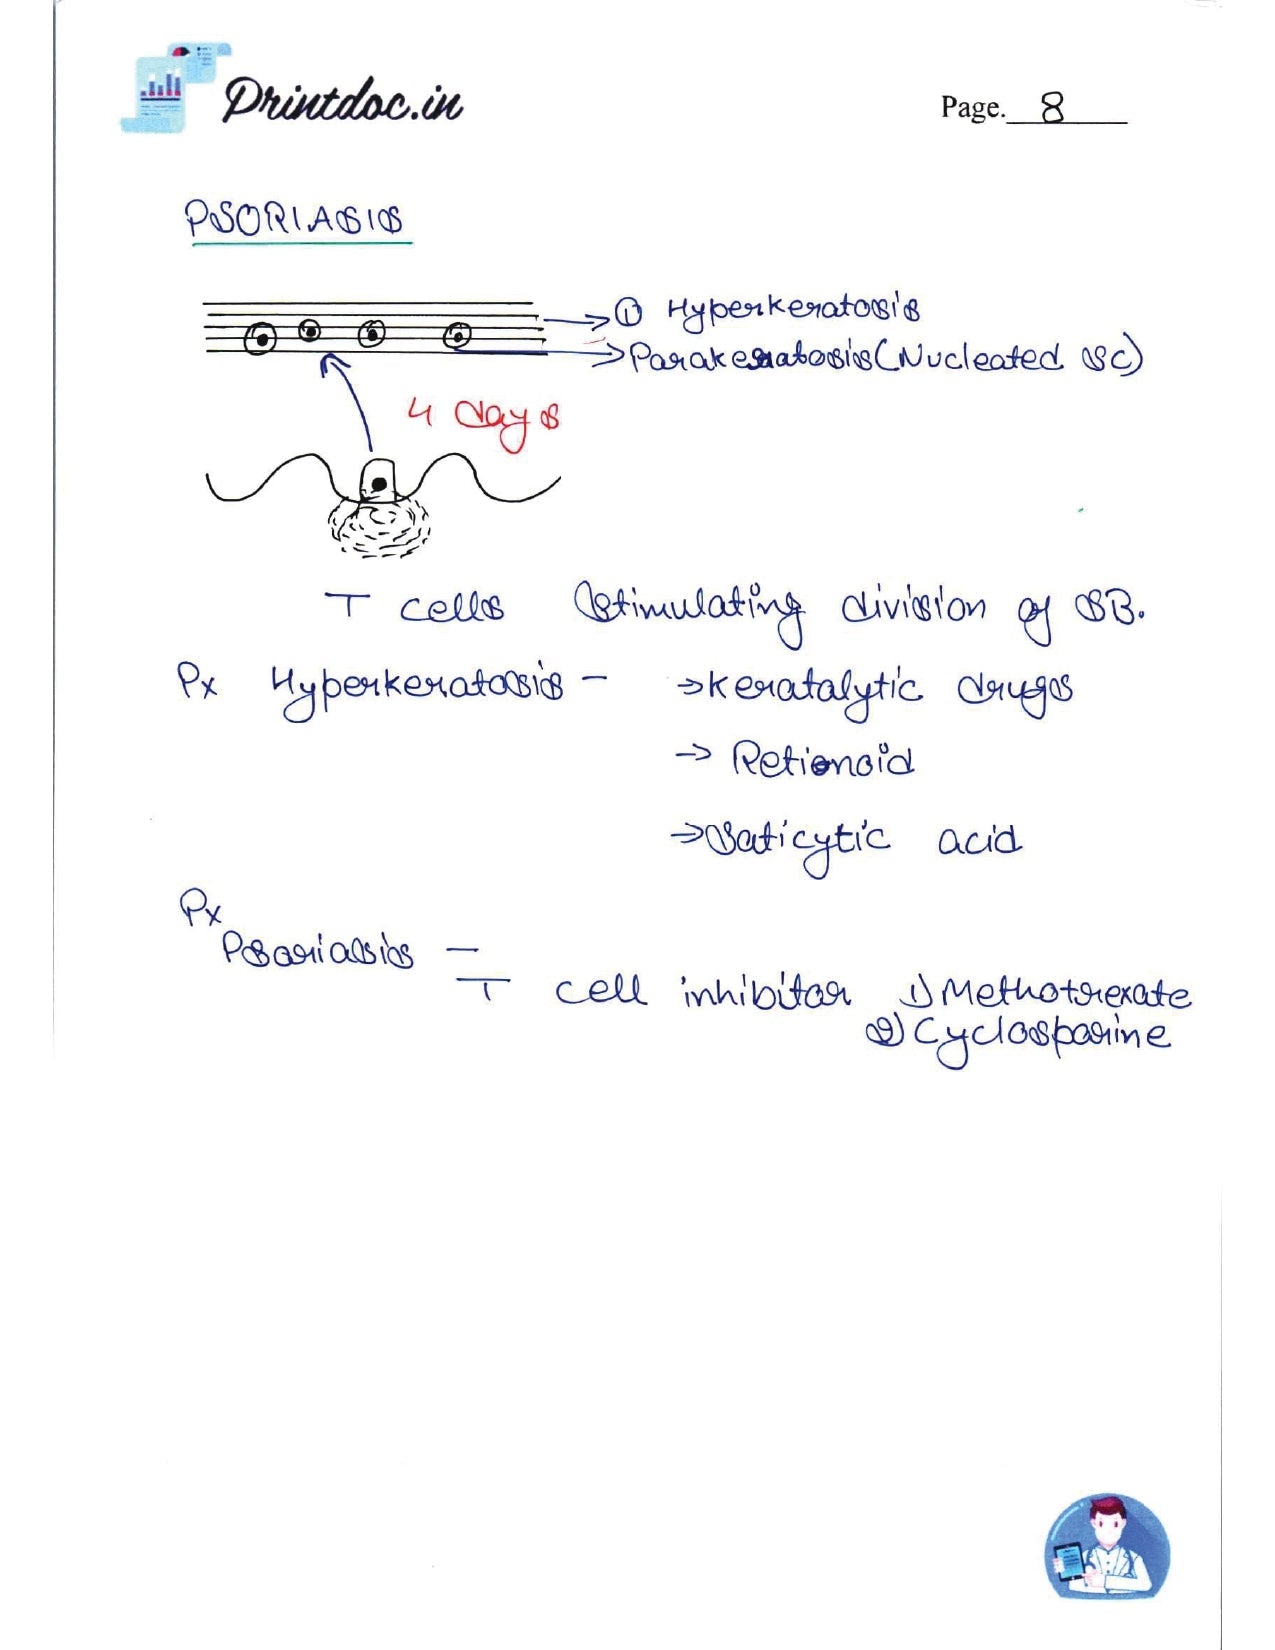 Printdoc.in
Page. 8
PSORIASIS
→ ① Hyperkeratosis
→ Parakeratosis (Nucleated SC)
4 days
T cells Stimulating division of SB.
Px Hyperkeratosis - → Keratalytic drugs
→ Retionoid
→ Saticytic acid
Px
Psoriasis -
T cell inhibitor 1) Methotrexate
2) Cyclosporine